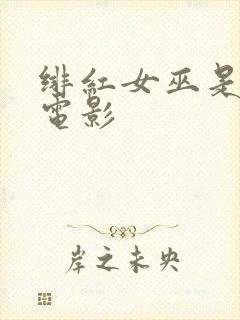 绯紅女巫是
電影
岸之未央